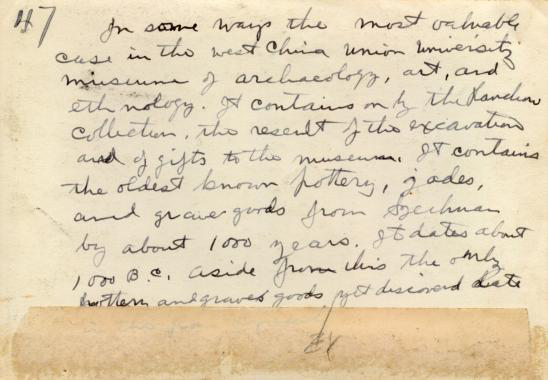 47
In some ways the most valuable
case in the west China Union University
museum of archaeology, art, and
ethnology. It contains only the Hanchow
collection, the result of the excavation
and of gifts to the museum. It contains
the oldest known pottery, jades,
and grave goods from Szechuan
by about 1000 years. It dates about
1000 B.C. aside from this the only
pottery and graves goods yet discovered date